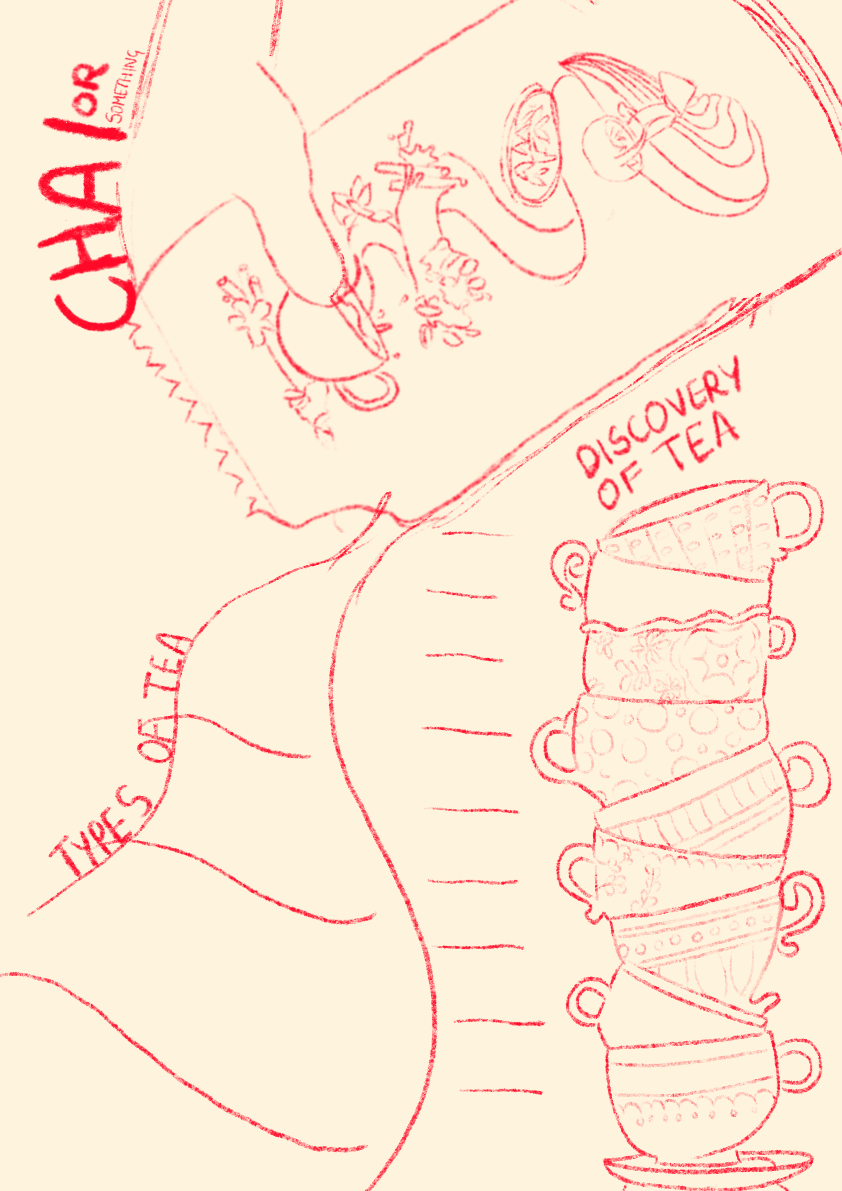 CHAI
OR
SOMETHING
DISCOVERY
OF TEA
TYPES OF TEA